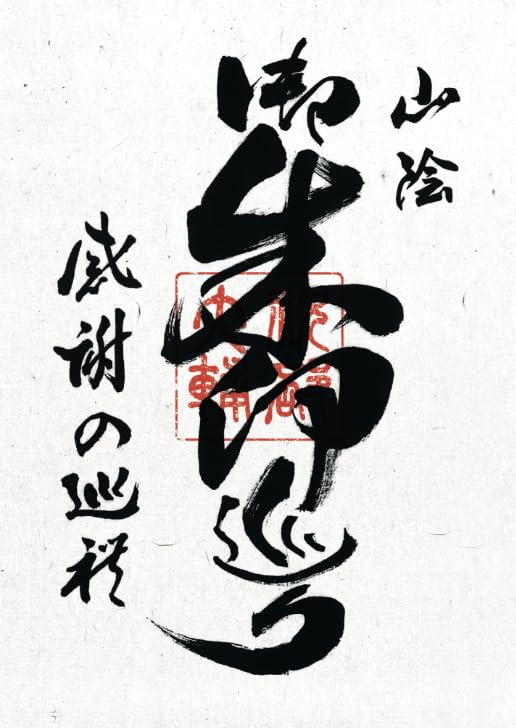 山陰
御朱印巡り
感謝の巡礼